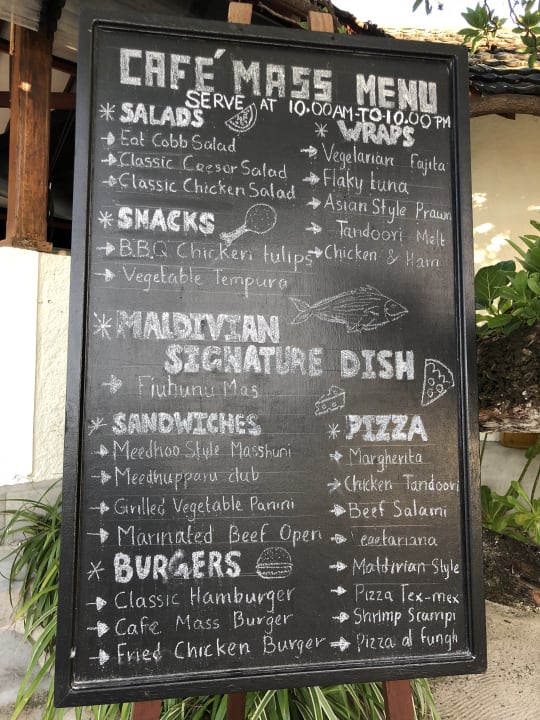 CAFÉ MASS MENU
SERVE AT 10.00AM-TO-10.00PM
* SALADS
→ Eat Cobb Salad
→ Classic Caesar Salad
→ Classic Chicken Salad
* WRAPS
→ Vegetarian Fajita
→ Flaky tuna
→ Asian Style Prawn
→ Tandoori Melt
→ Chicken & Ham
* SNACKS
→ B.B.Q Chicken tulips
→ Vegetable Tempura
* MALDIVIAN
SIGNATURE DISH
→ Fiuhunu Mas
* SANDWICHES
→ Meedhoo Style Masshuni
→ Meedhupparu club
→ Grilled Vegetable Panini
→ Marinated Beef Open
* PIZZA
→ Margherita
→ Chicken Tandoori
→ Beef Salami
→ Vegetariana
→ Maldivian Style
→ Pizza Tex-mex
→ Shrimp Scampi
→ Pizza al Funghi
* BURGERS
→ Classic Hamburger
→ Cafe Mass Burger
→ Fried Chicken Burger